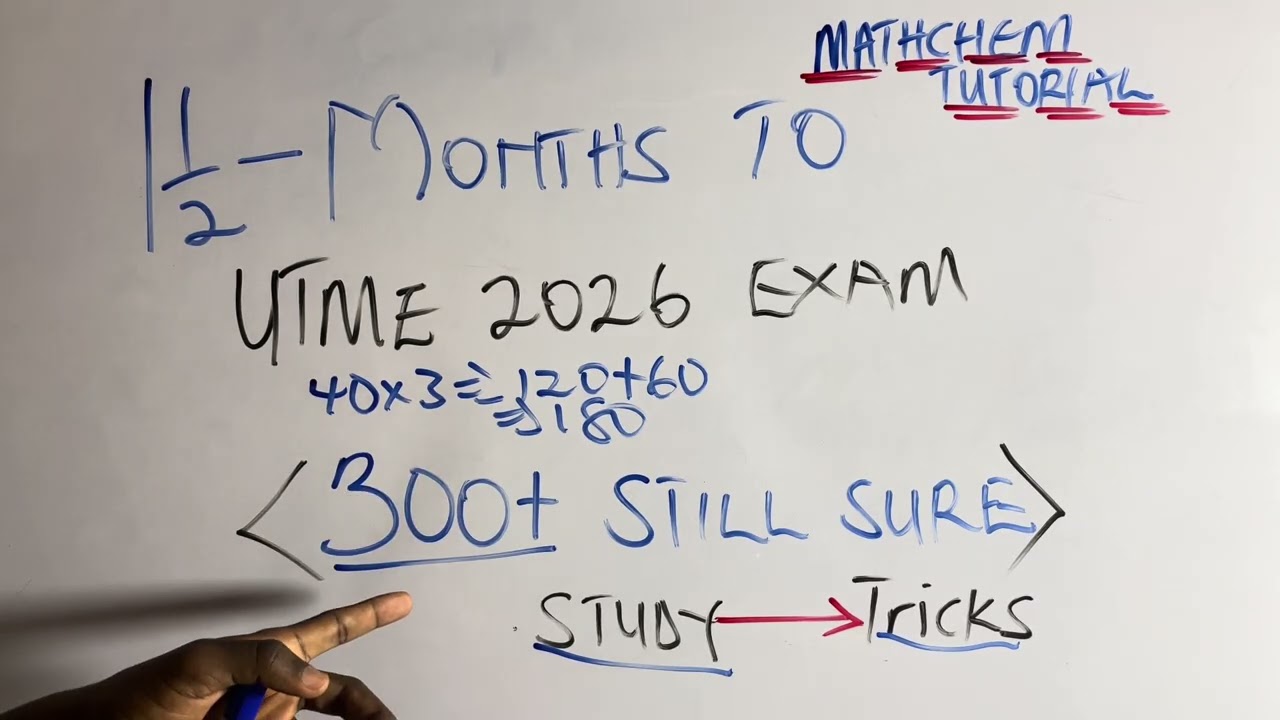 MATHCHEM
TUTORIAL
1 1/2 - MONTHS TO
UTME 2026 EXAM
40x3 = 120+60
= 180
<300+ STILL SURE>
STUDY → Tricks